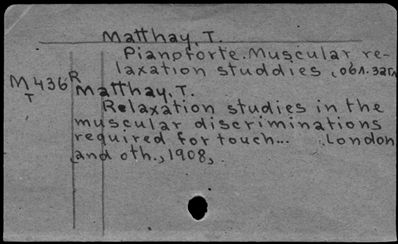 Matthay, T.
Pianoforte. Muscular re-
laxation studdies,
M436R
T
Matthay, T.
Relaxation studies in the
muscular discriminations
required for touch... London
and oth., 1908,